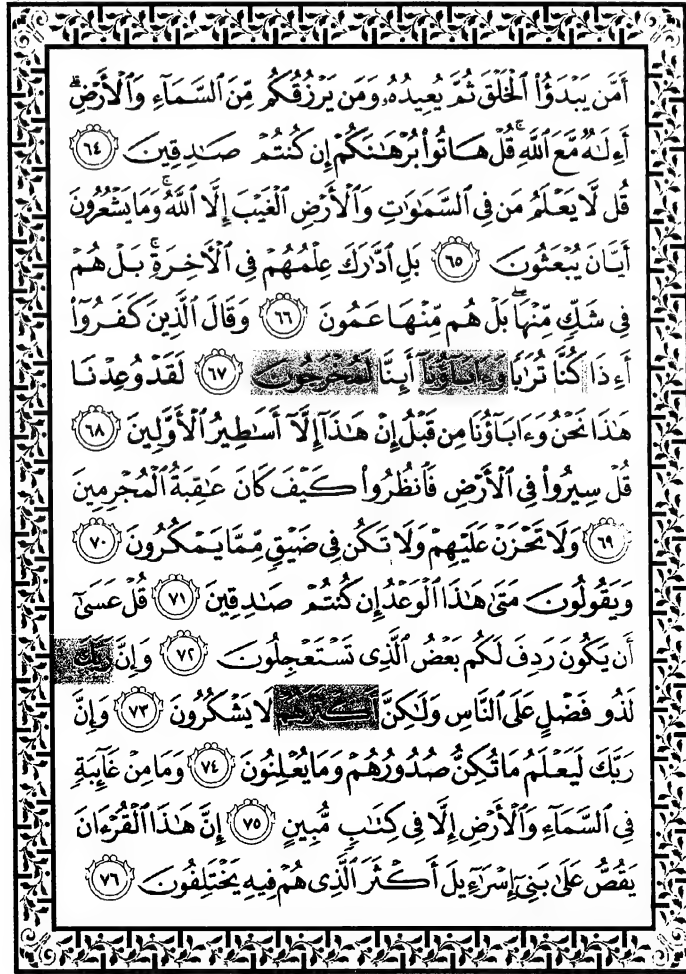 أَمَّن يَبْدَؤُاْ ٱلْخَلْقَ ثُمَّ يُعِيدُهُۥ وَمَن يَرْزُقُكُم مِّنَ ٱلسَّمَآءِ وَٱلْأَرْضِۗ
أَءِلَٰهٌ مَّعَ ٱللَّهِۚ قُلْ هَاتُواْ بُرْهَٰنَكُمْ إِن كُنتُمْ صَٰدِقِينَ ٦٤
قُل لَّا يَعْلَمُ مَن فِى ٱلسَّمَٰوَٰتِ وَٱلْأَرْضِ ٱلْغَيْبَ إِلَّا ٱللَّهُۚ وَمَا يَشْعُرُونَ
أَيَّانَ يُبْعَثُونَ ٦٥ بَلِ ٱدَّٰرَكَ عِلْمُهُمْ فِى ٱلْأَخِرَةِۚ بَلْ هُمْ
فِى شَكٍّ مِّنْهَاۖ بَلْ هُم مِّنْهَا عَمُونَ ٦٦ وَقَالَ ٱلَّذِينَ كَفَرُوٓاْ
أَءِذَا كُنَّا تُرَٰبًا وَءَابَآؤُنَآ أَئِنَّا لَمُخْرَجُونَ ٦٧ لَقَدْ وُعِدْنَا
هَٰذَا نَحْنُ وَءَابَآؤُنَا مِن قَبْلُ إِنْ هَٰذَآ إِلَّآ أَسَٰطِيرُ ٱلْأَوَّلِينَ ٦٨
قُلْ سِيرُواْ فِى ٱلْأَرْضِ فَٱنظُرُواْ كَيْفَ كَانَ عَٰقِبَةُ ٱلْمُجْرِمِينَ
٦٩ وَلَا تَحْزَنْ عَلَيْهِمْ وَلَا تَكُن فِى ضَيْقٍ مِّمَّا يَمْكُرُونَ ٧٠
وَيَقُولُونَ مَتَىٰ هَٰذَا ٱلْوَعْدُ إِن كُنتُمْ صَٰدِقِينَ ٧١ قُلْ عَسَىٰٓ
أَن يَكُونَ رَدِفَ لَكُم بَعْضُ ٱلَّذِى تَسْتَعْجِلُونَ ٧٢ وَإِنَّ رَبَّكَ
لَذُو فَضْلٍ عَلَى ٱلنَّاسِ وَلَٰكِنَّ أَكْثَرَهُمْ لَا يَشْكُرُونَ ٧٣ وَإِنَّ
رَبَّكَ لَيَعْلَمُ مَا تُكِنُّ صُدُورُهُمْ وَمَا يُعْلِنُونَ ٧٤ وَمَا مِنْ غَآئِبَةٍ
فِى ٱلسَّمَآءِ وَٱلْأَرْضِ إِلَّا فِى كِتَٰبٍ مُّبِينٍ ٧٥ إِنَّ هَٰذَا ٱلْقُرْءَانَ
يَقُصُّ عَلَىٰ بَنِىٓ إِسْرَٰٓءِيلَ أَكْثَرَ ٱلَّذِى هُمْ فِيهِ يَخْتَلِفُونَ ٧٦